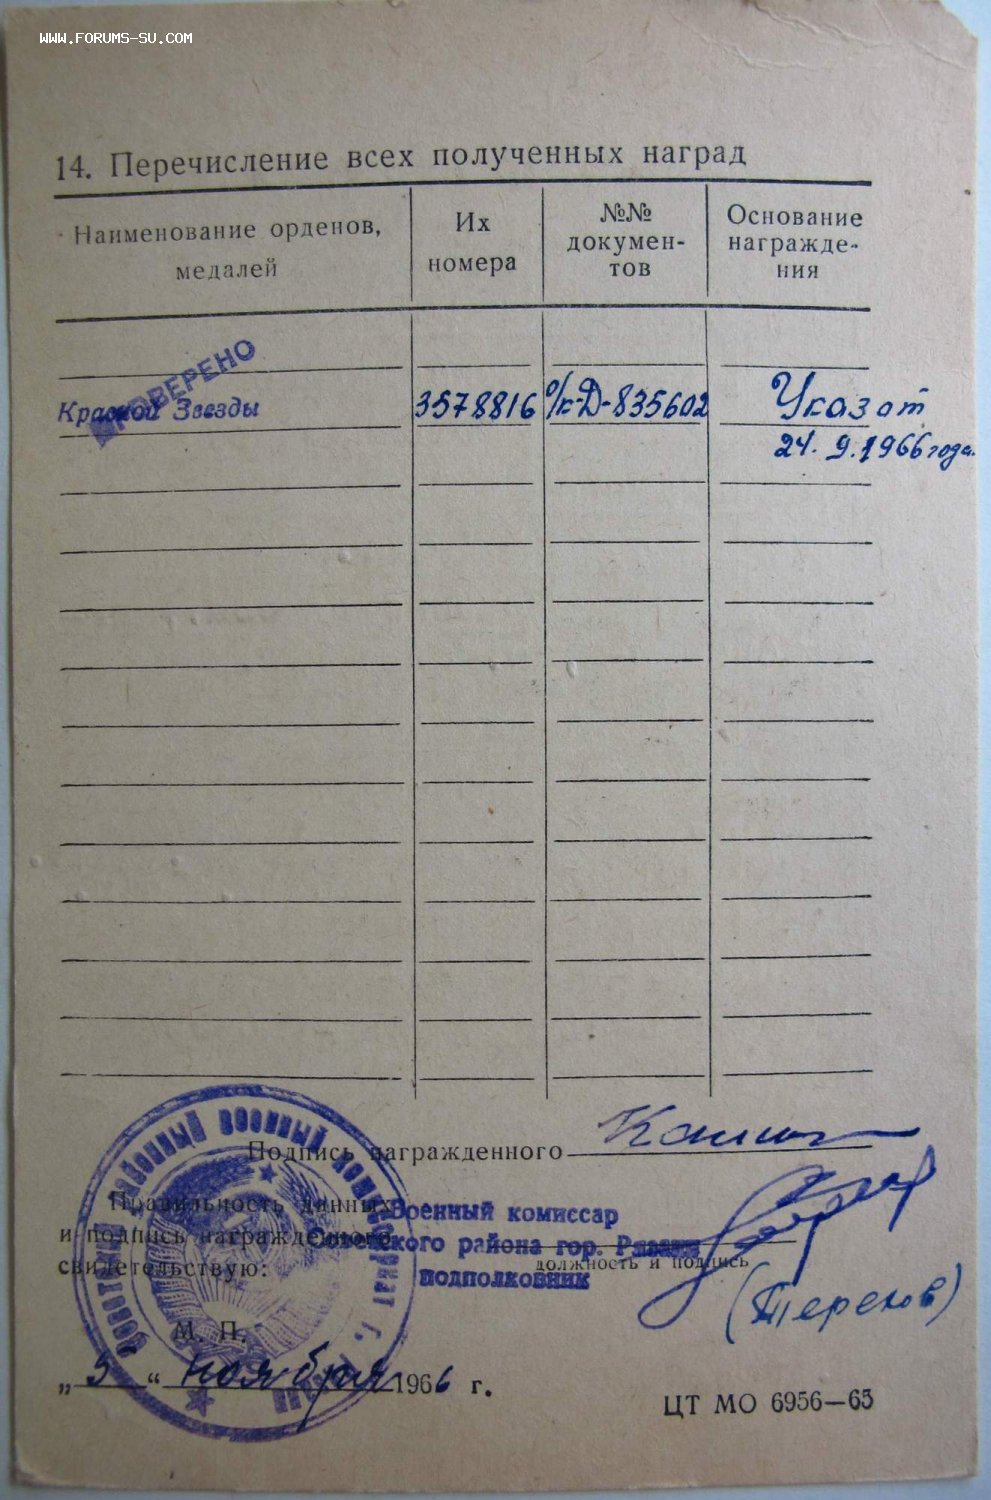 WWW.FORUMS-SU.COM
14. Перечисление всех полученных наград
Наименование орденов,
медалей
Их
номера
№№
докумен-
тов
Основание
награжде-
ния
ПРОВЕРЕНО
Красной Звезды
3578816
о/к-Д-835602
Указ от
24. 9. 1966 года.
Подпись награжденного
Правильность данных
и подпись награжденного
свидетельствую:
Военный комиссар
Советского района гор. Рязани
подполковник
должность и подпись
(Терехов)
М. П.
Советский районный военный комиссариат г.
„5“ ноября 1966 г.
ЦТ МО 6956—65